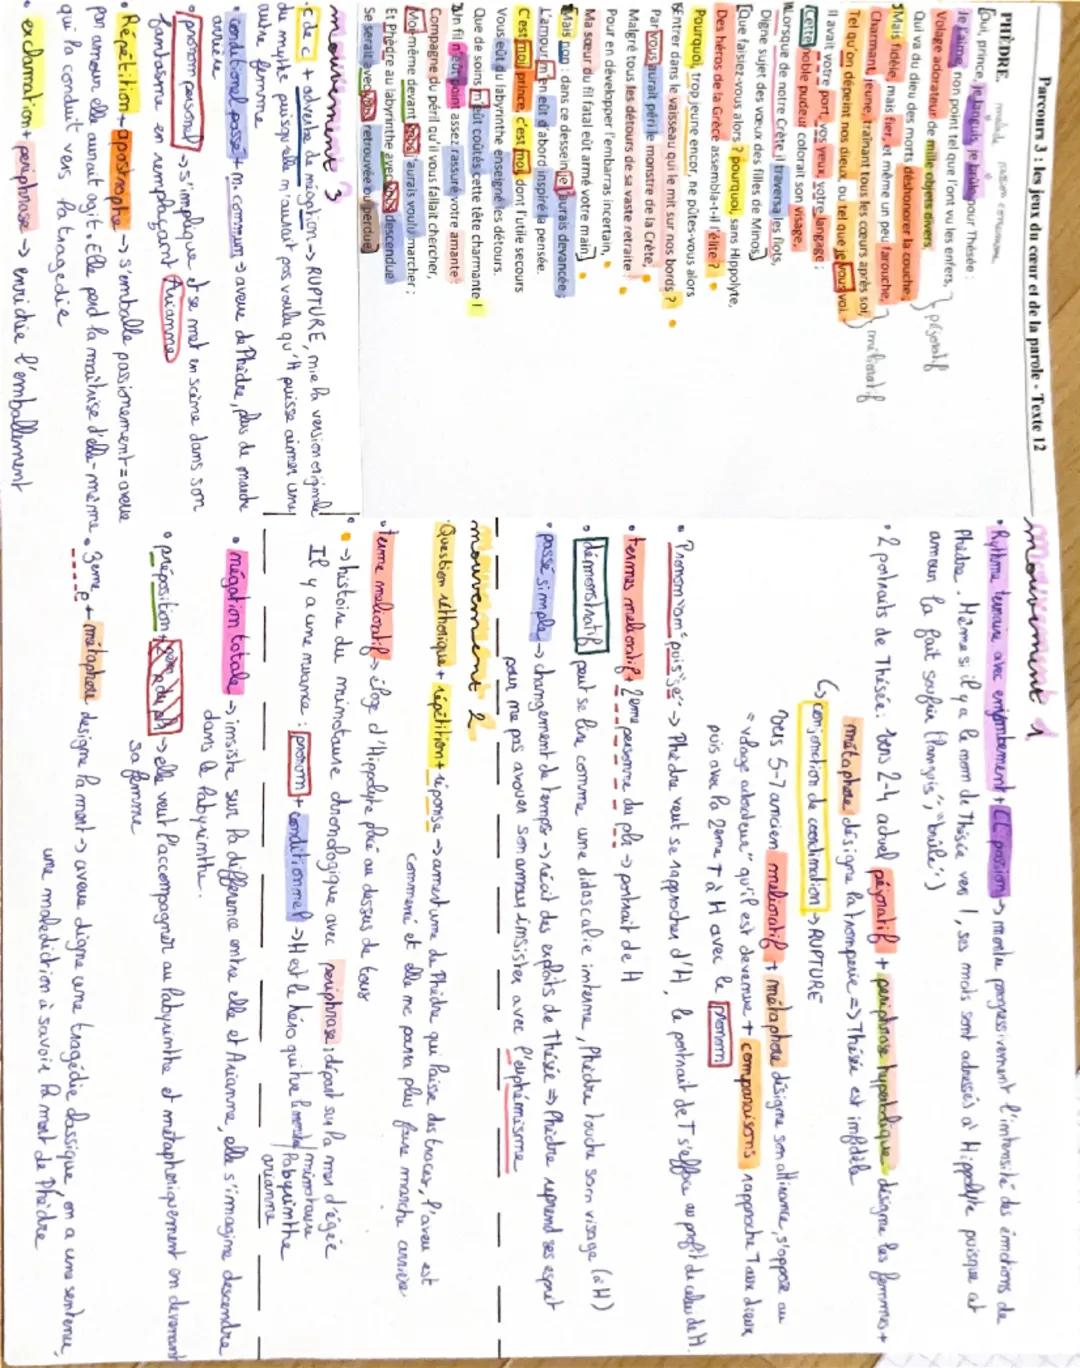 Parcours 3 : les jeux du cœur et de la parole - Texte 12
PHÈDRE.
Oui, prince, je languis, je brûle pour Thésée :
Je l'aime, non point tel que l'ont vu les enfers,
Volage adorateur de mille objets divers,
Qui va du dieu des morts déshonorer la couche ;
Mais fidèle, mais fier, et même un peu farouche,
Charmant, jeune, traînant tous les cœurs après soi,
Tel qu'on dépeint nos dieux, ou tel que je vous voi.
péjoratif
mélioratif
Il avait votre port, vos yeux, votre langage ;
Cette noble pudeur colorait son visage,
Lorsque de notre Crète il traversa les flots,
Digne sujet des vœux des filles de Minos.
Que faisiez-vous alors ? pourquoi, sans Hippolyte,
Des héros de la Grèce assembla-t-il l'élite ?
Pourquoi, trop jeune encor, ne pûtes-vous alors
Entrer dans le vaisseau qui le mit sur nos bords ?
Par vous aurait péri le monstre de la Crète,
Malgré tous les détours de sa vaste retraite :
Pour en développer l'embarras incertain,
Ma sœur du fil fatal eût armé votre main.
Mais non : dans ce dessein je l'aurais devancée ;
L'amour m'en eût d'abord inspiré la pensée.
C'est moi, prince, c'est moi, dont l'utile secours
Vous eût du labyrinthe enseigné les détours.
Que de soins m'eût coûtés cette tête charmante !
Un fil n'eût point assez rassuré votre amante :
Compagne du péril qu'il vous fallait chercher,
Moi-même devant vous j'aurais voulu marcher ;
Et Phèdre au labyrinthe avec vous descendue
Se serait avec vous retrouvée ou perdue.
mouvement 3
• C de c + adverbe de négation → RUPTURE, nie la version originale
du mythe puisqu'elle n'aurait pas voulu qu'H puisse aimer une
autre femme
• conditionel passé + m. commun → aveu de Phèdre, plus de marche
arrière
• pronom personel → s'implique et se met en scène dans son
fantasme en remplaçant Arianne
• Répétition + apostrophe → s'emballe passionement = aveu
par amour elle aurait agit. Elle perd la maîtrise d'elle-même
qui la conduit vers la tragedie
• exclamation + periphrase → enrichie l'emballement
mouvement 1
• Rythme ternaire avec enjambement + CL passion → montre progressivement l'intensité des émotions de
Phèdre. Même si il y a le nom de Thésée vers 1, ses mots sont adressés à Hippolyte puisque cet
amour la fait soufrir ("languis", "brûle")
• 2 portraits de Thésée : vers 2-4 actuel péjoratif + periphrase hyperbolique désigne les femmes +
métaphore désigne la tromperie => Thésée est infidèle
↳ conjonction de coordination → RUPTURE
vers 5-7 ancien melioratif + métaphore désigne son attirance, s'oppose au
"volage adorateur" qu'il est devenue + comparaisons rapproche T aux dieux
puis avec la 2eme T à H avec le pronom
• Pronom "vous" puis "je" → Phèdre veut se rapprocher d'H, le portrait de T s'efface au profit de celui de H.
• termes melioratif + 2eme personne du plu → portrait de H
• démonstratif peut se lire comme une didascalie interne, Phèdre touche son visage (à H)
• passé simple → changement de temps → récit des exploits de Thésée => Phèdre reprend ses esprit
pour ne pas avouer son amour insister avec l'euphémisme
mouvement 2
• Question réthorique + répétition + réponse → amertume de Phèdre qui laisse des traces, l'aveu est
commencé et elle ne pourra plus faire marche arrière
• terme melioratif → éloge d'Hippolyte placé au dessus de tous
• → histoire du minotaure chronologique avec periphrase ; départ sur la mer d'égée
Il y a une nuance : pronom + conditionnel → H est le héro qui tue
minotaure
labyrinthe
arianne
• négation totale → insiste sur la différence entre elle et Arianne, elle s'immagine descendre
dans le labyrinthe.
• préposition → elle veut l'accompagner au labyrinthe et métaphoriquement en devenant
sa femme
• 3eme p + métaphore designe la mort → aveu digne une tragédie classique, on a une sentence,
une malediction à savoir la mort de Phèdre